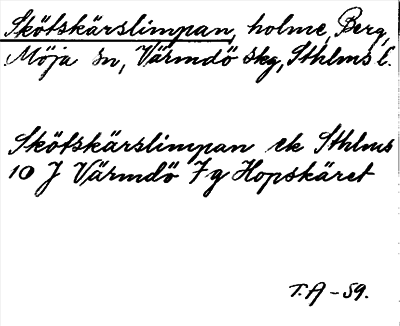 Skötskärslimpan, holme, Berg,
Möja sn, Värmdö skg, Sthlms l.
Skötskärslimpan ek Sthlms
10 J Värmdö 7 g Hopskäret
T.A -59.